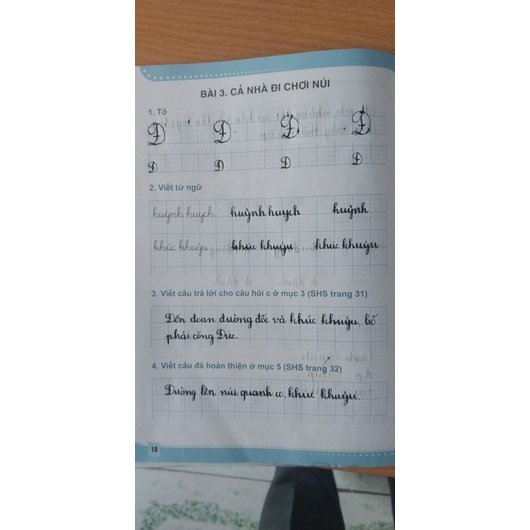 BÀI 3. CẢ NHÀ ĐI CHƠI NÚI
1. Tô
Đ Đ Đ Đ
Đ Đ Đ Đ
2. Viết từ ngữ
huỳnh huỵch huỳnh huỵch huỳnh
khúc khuỷu khúc khuỷu khúc khuỷu
3. Viết câu trả lời cho câu hỏi c ở mục 3 (SHS trang 31)
Đến đoạn đường dốc và khúc khuỷu, bố
phải cõng Đức.
4. Viết câu đã hoàn thiện ở mục 5 (SHS trang 32)
Đường lên núi quanh co, khúc khuỷu.
10